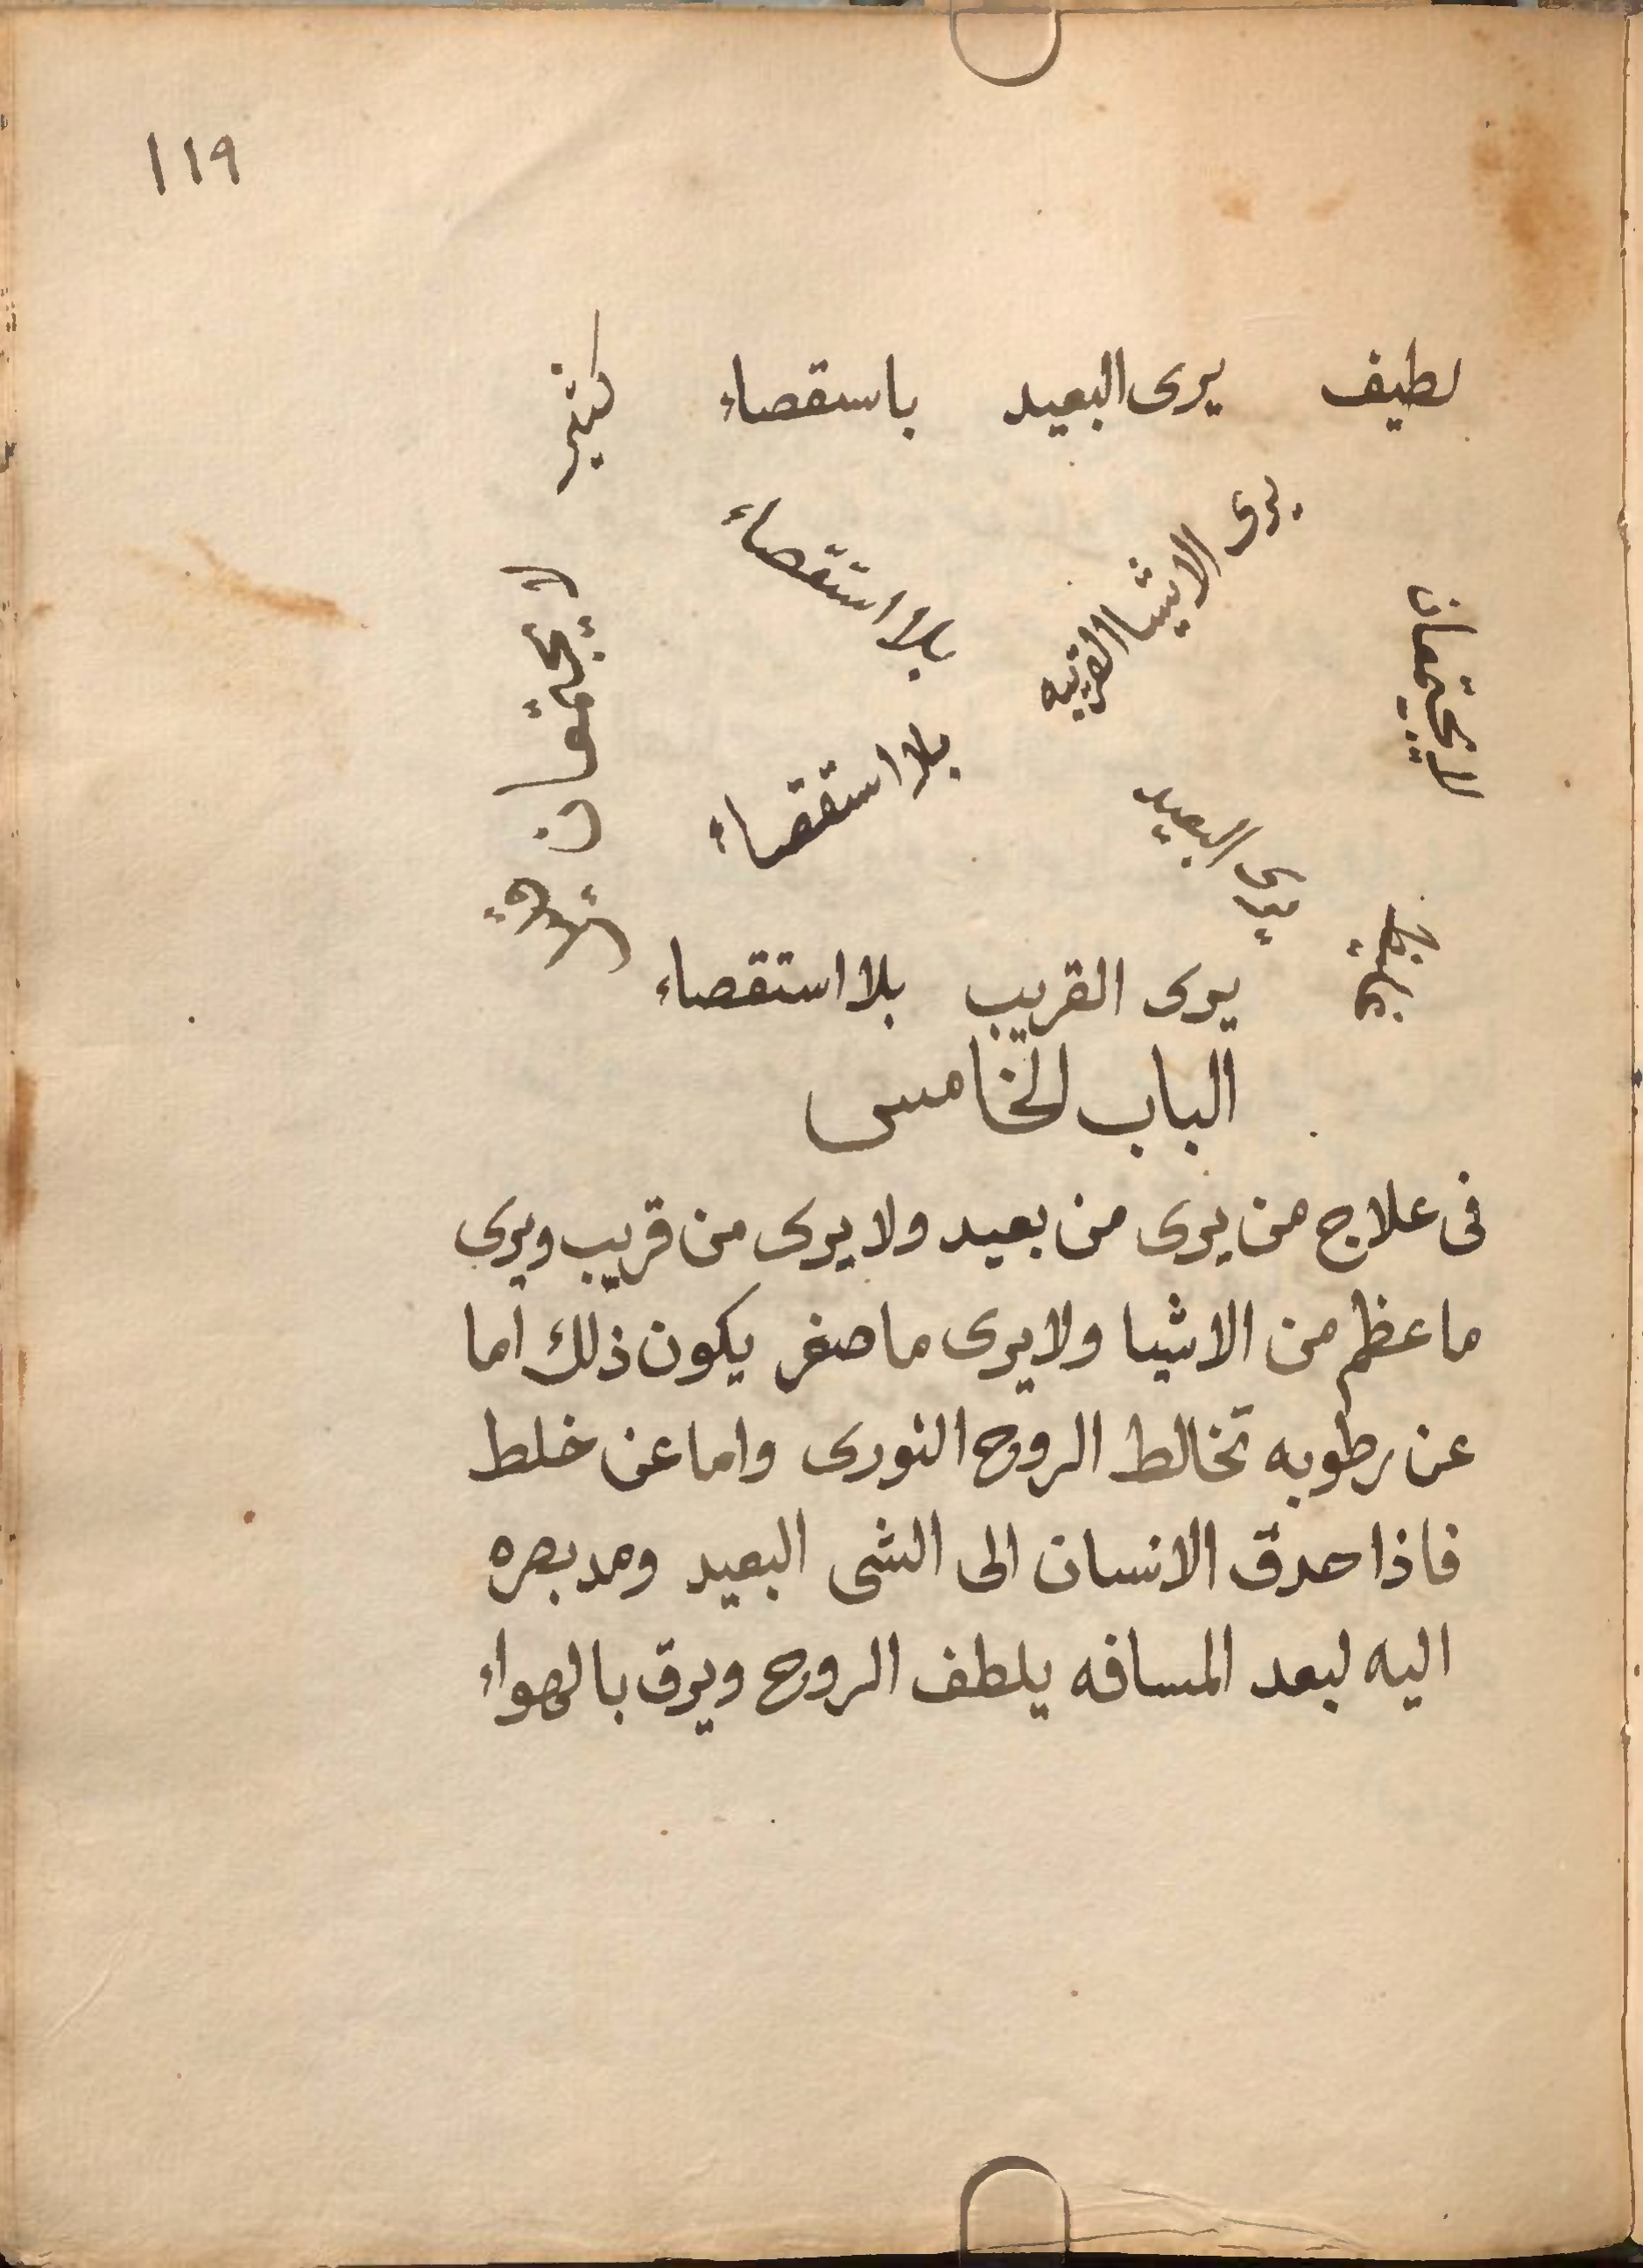 ١١٩
لطيف يرى البعيد باسقصاء كثير
يرى الاشيا القريبه بلا استقصاء
لا يجتمعان
لا يجتمعان
يرى البعيد بلا استقصاء
غليظ
يرى القريب بلا استقصاء
الباب الخامس
فى علاج من يرى من بعيد ولا يرى من قريب ويرى
ما عظم من الاشيا ولا يرى ما صغر يكون ذلك اما
عن رطوبه تخالط الروح النورى واما عن خلط
فاذا حدق الانسان الى الشى البعيد ومد بصره
اليه لبعد المسافه يلطف الروح ويرق بالهواء